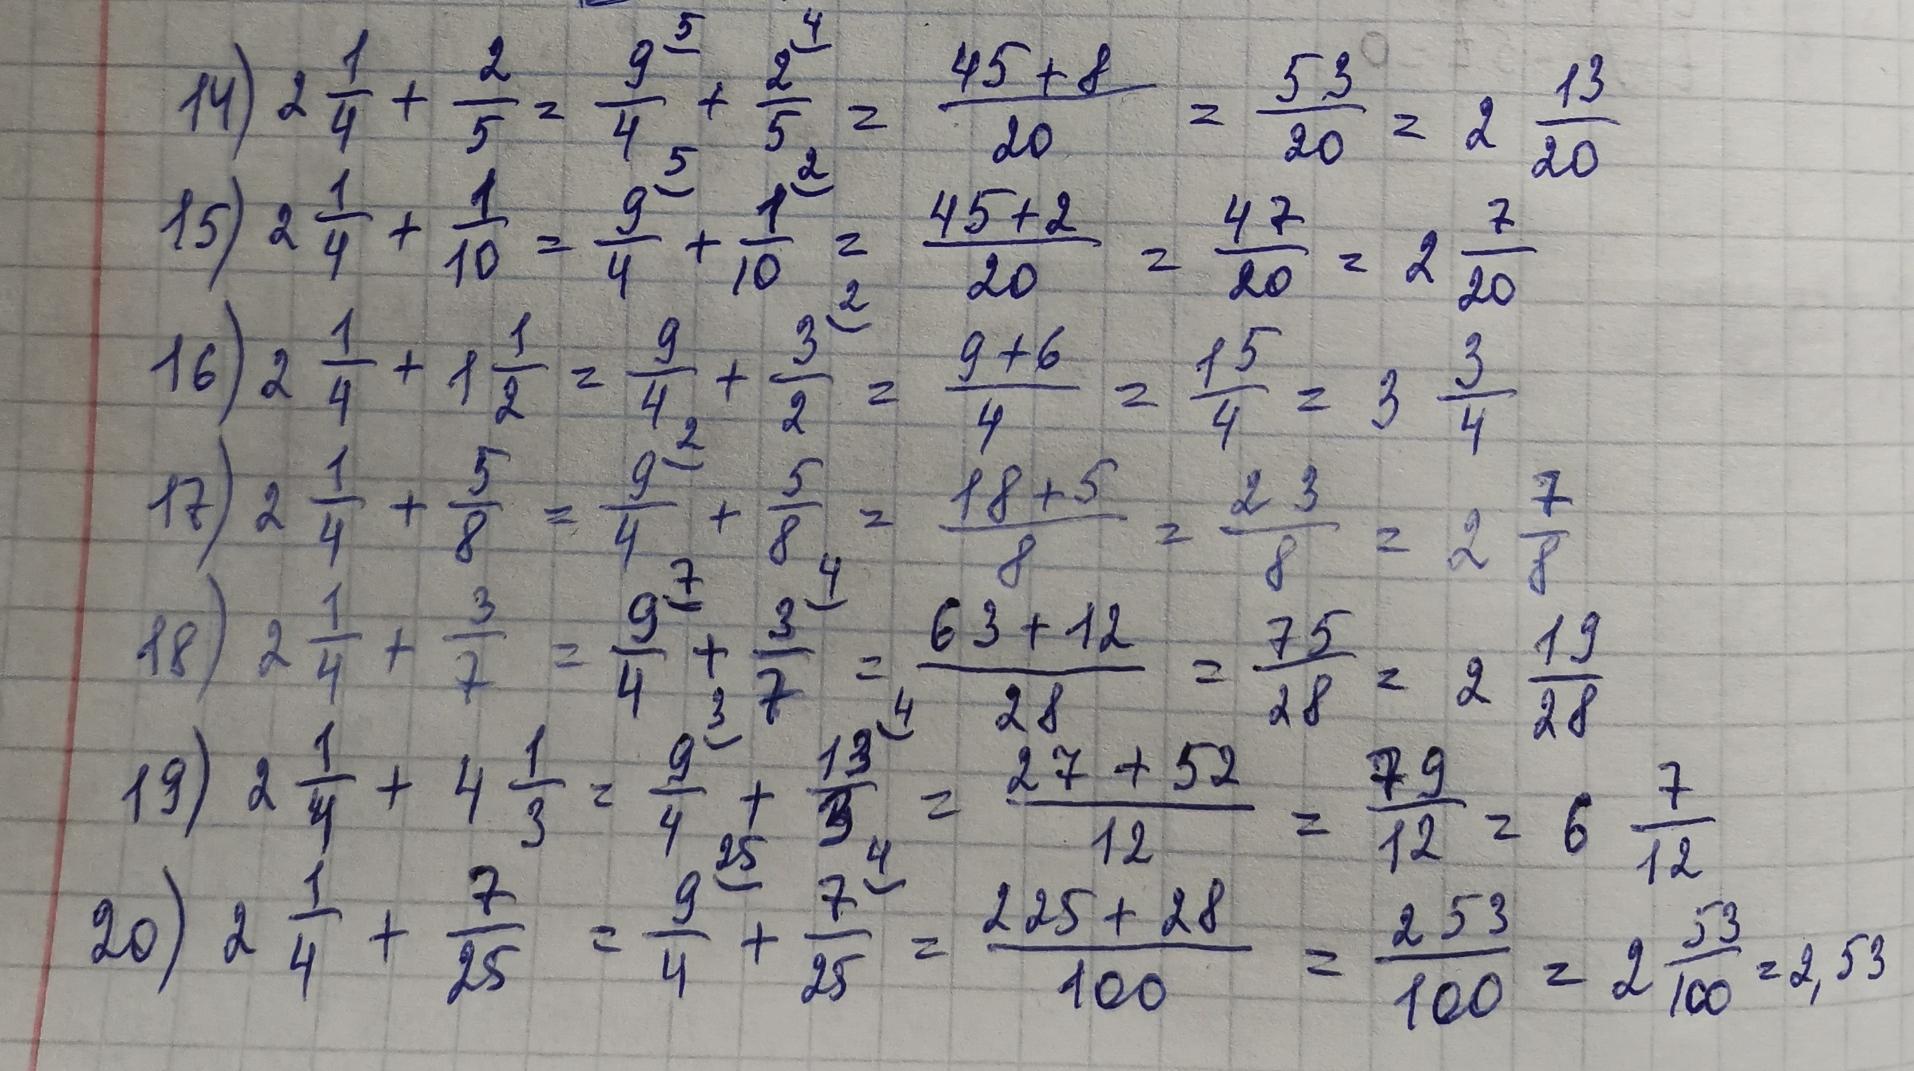 14) 2 1/4 + 2/5 = 9/4 ⁵ + 2/5 ⁴ = (45+8)/20 = 53/20 = 2 13/20
15) 2 1/4 + 1/10 = 9/4 ⁵ + 1/10 ² = (45+2)/20 = 47/20 = 2 7/20
16) 2 1/4 + 1 1/2 = 9/4 + 3/2 ² = (9+6)/4 = 15/4 = 3 3/4
17) 2 1/4 + 5/8 = 9/4 ² + 5/8 = (18+5)/8 = 23/8 = 2 7/8
18) 2 1/4 + 3/7 = 9/4 ⁷ + 3/7 ⁴ = (63+12)/28 = 75/28 = 2 19/28
19) 2 1/4 + 4 1/3 = 9/4 ³ + 13/3 ⁴ = (27+52)/12 = 79/12 = 6 7/12
20) 2 1/4 + 7/25 = 9/4 ²⁵ + 7/25 ⁴ = (225+28)/100 = 253/100 = 2 53/100 = 2,53